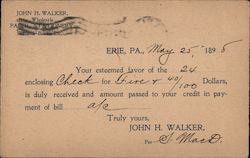 JOHN H. WALKER,
Wholesale
ERIE, PA., May 25, 1895
Your esteemed favor of the 24
enclosing Check for Five & 40/100 Dollars,
is duly received and amount passed to your credit in pay-
ment of bill a/c
Truly yours,
JOHN H. WALKER,
Per S. MacD.